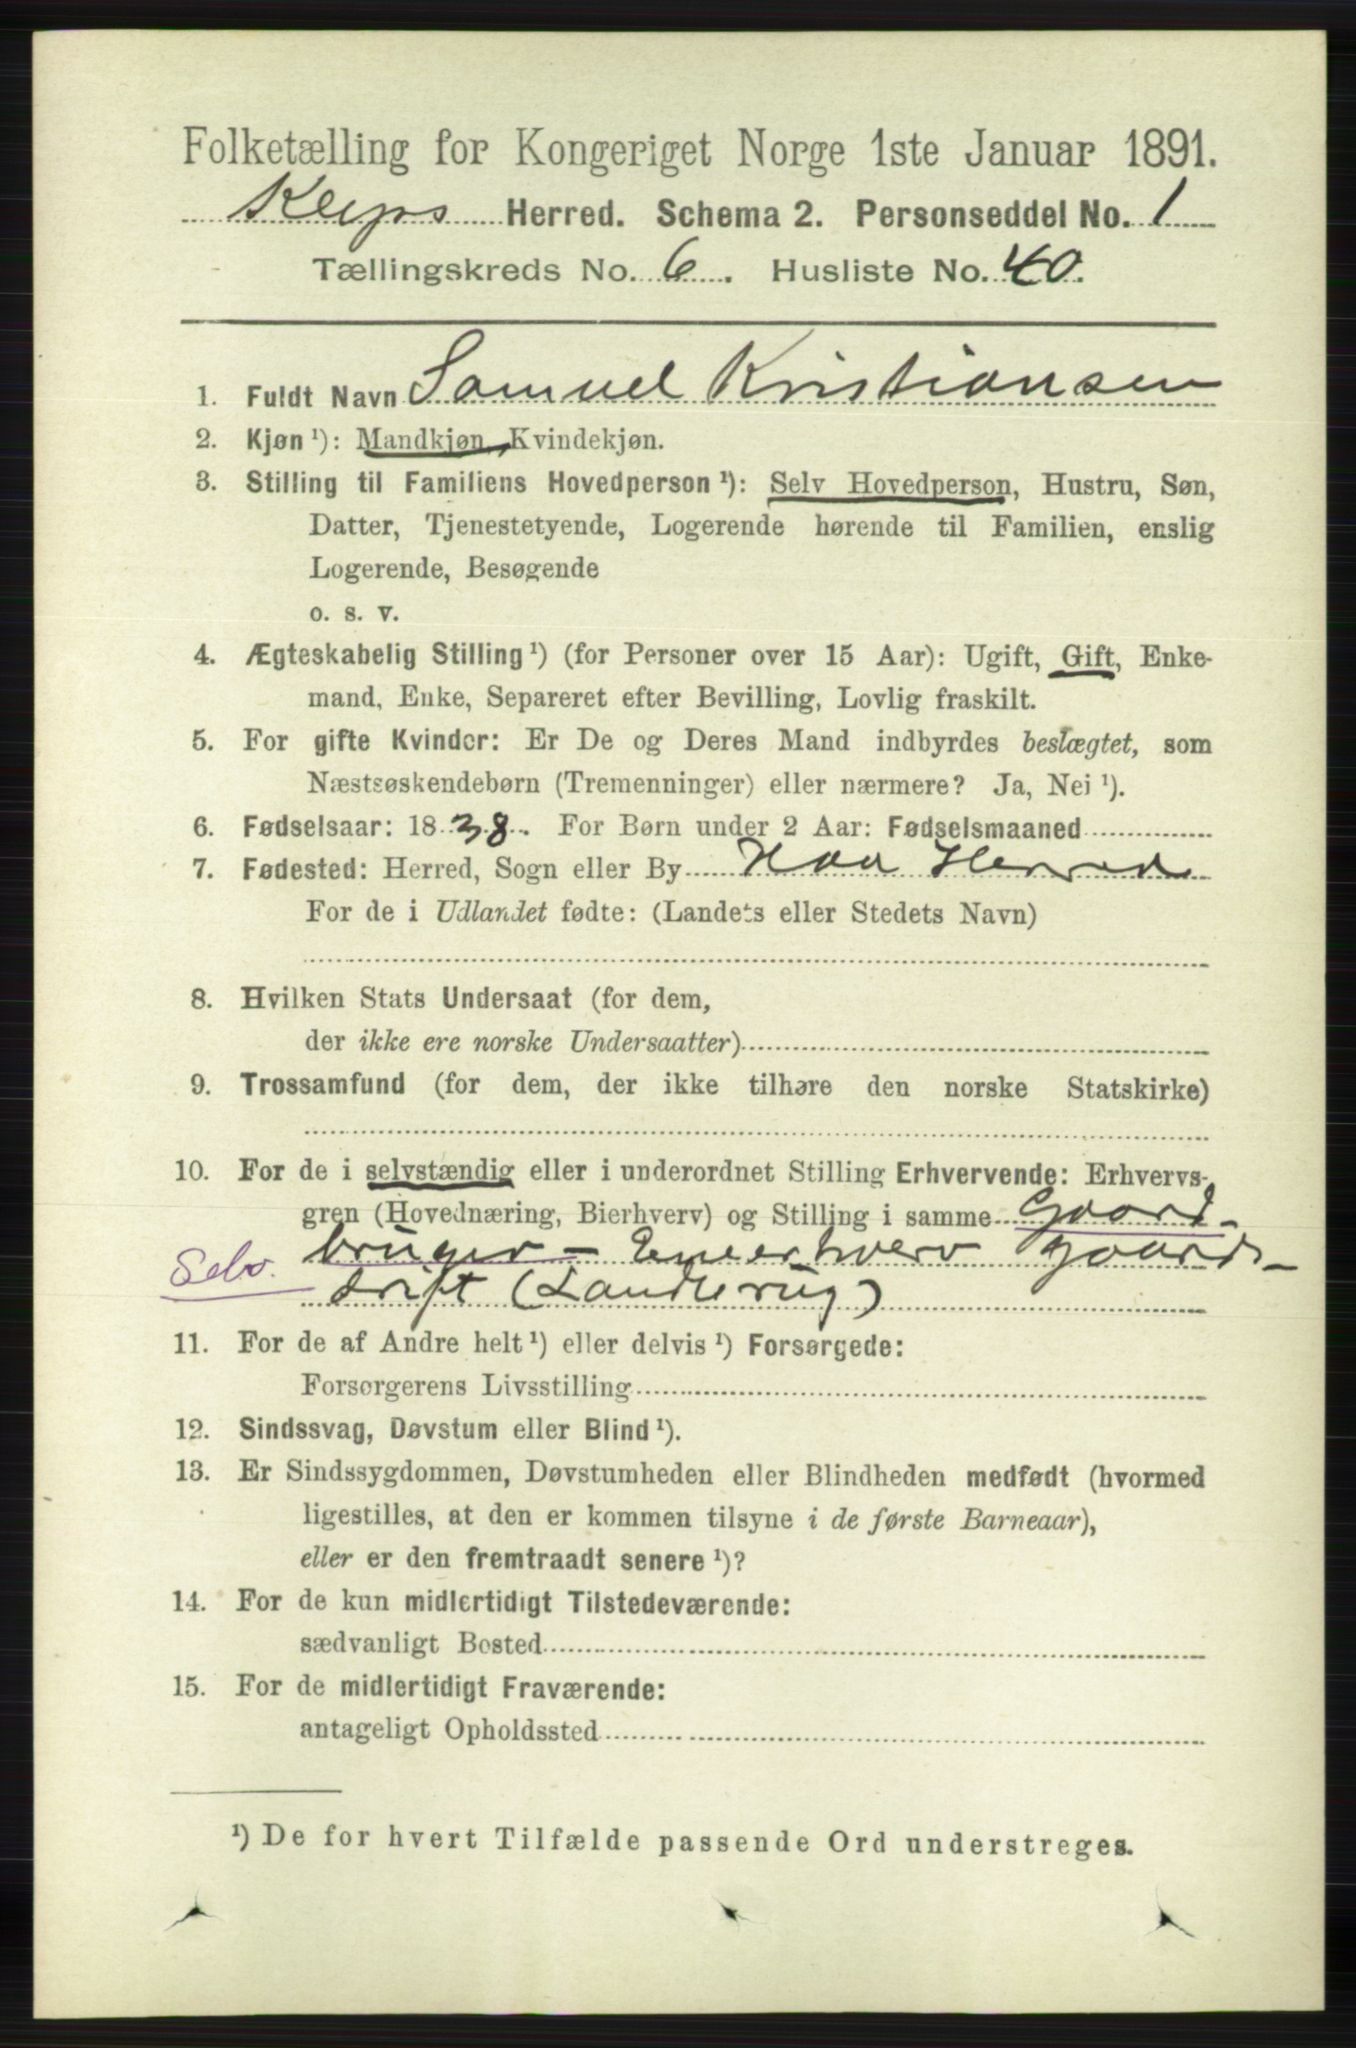 Folketælling for Kongeriget Norge 1ste Januar 1891.
Kleps Herred. Schema 2. Personseddel No. 1
Tællingskreds No. 6. Husliste No. 40.
1. Fuldt Navn Samuel Kristiansen
2. Kjøn ¹): Mandkjøn, Kvindekjøn.
3. Stilling til Familiens Hovedperson ¹): Selv Hovedperson, Hustru, Søn,
Datter, Tjenestetyende, Logerende hørende til Familien, enslig
Logerende, Besøgende
o. s. v.
4. Ægteskabelig Stilling ¹) (for Personer over 15 Aar): Ugift, Gift, Enke-
mand, Enke, Separeret efter Bevilling, Lovlig fraskilt.
5. For gifte Kvinder: Er De og Deres Mand indbyrdes beslægtet, som
Næstsøskendebørn (Tremenninger) eller nærmere? Ja, Nei ¹).
6. Fødselsaar: 1838. For Børn under 2 Aar: Fødselsmaaned
7. Fødested: Herred, Sogn eller By Haa Herred
For de i Udlandet fødte: (Landets eller Stedets Navn)
8. Hvilken Stats Undersaat (for dem,
der ikke ere norske Undersaatter)
9. Trossamfund (for dem, der ikke tilhøre den norske Statskirke)
10. For de i selvstændig eller i underordnet Stilling Erhvervende: Erhvervs-
gren (Hovednæring, Bierhverv) og Stilling i samme Gaard-
Selv. bruger - Eneerhverv Gaards-
drift (Landbrug)
11. For de af Andre helt ¹) eller delvis ¹) Forsørgede:
Forsørgerens Livsstilling
12. Sindssvag, Døvstum eller Blind ¹).
13. Er Sindssygdommen, Døvstumheden eller Blindheden medfødt (hvormed
ligestilles, at den er kommen tilsyne i de første Barneaar),
eller er den fremtraadt senere ¹)?
14. For de kun midlertidigt Tilstedeværende:
sædvanligt Bosted
15. For de midlertidigt Fraværende:
antageligt Opholdssted
¹) De for hvert Tilfælde passende Ord understreges.